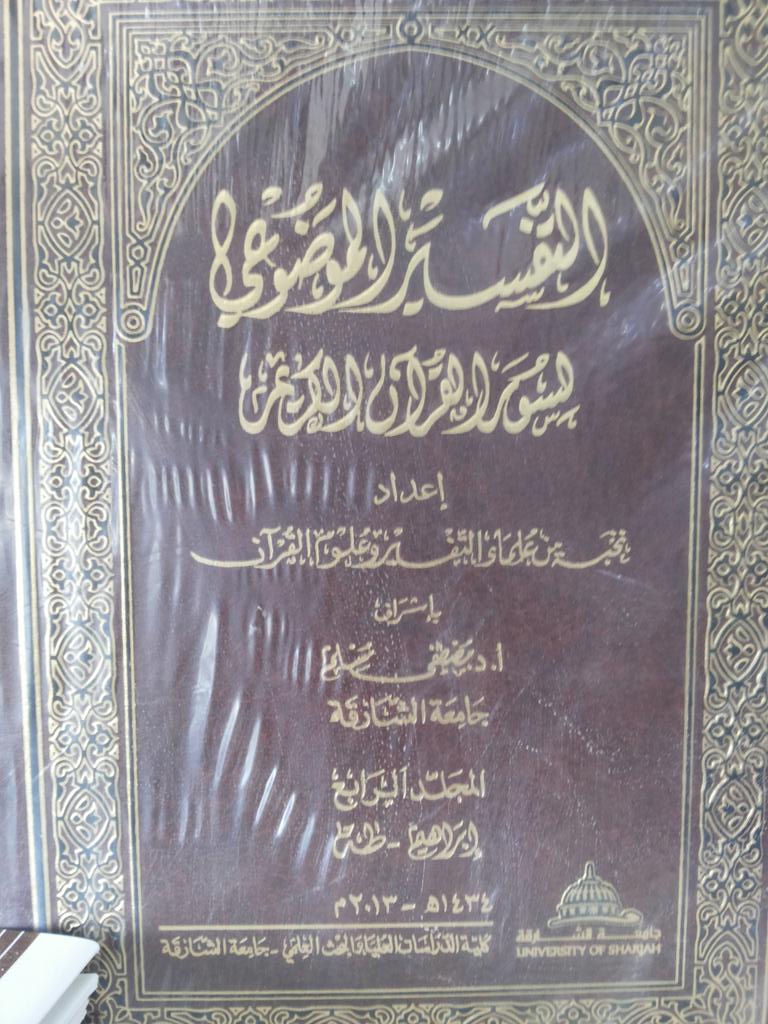 التفسير الموضوعي
لسور القرآن الكريم
إعداد
نخبة من علماء التفسير وعلوم القرآن
بإشراف
أ.د مصطفى مسلم
جامعة الشارقة
المجلد الرابع
إبراهيم - طه
١٤٣٤هـ - ٢٠١٣م
كلية الدراسات العليا والبحث العلمي - جامعة الشارقة
جامعة الشارقة
UNIVERSITY OF SHARJAH